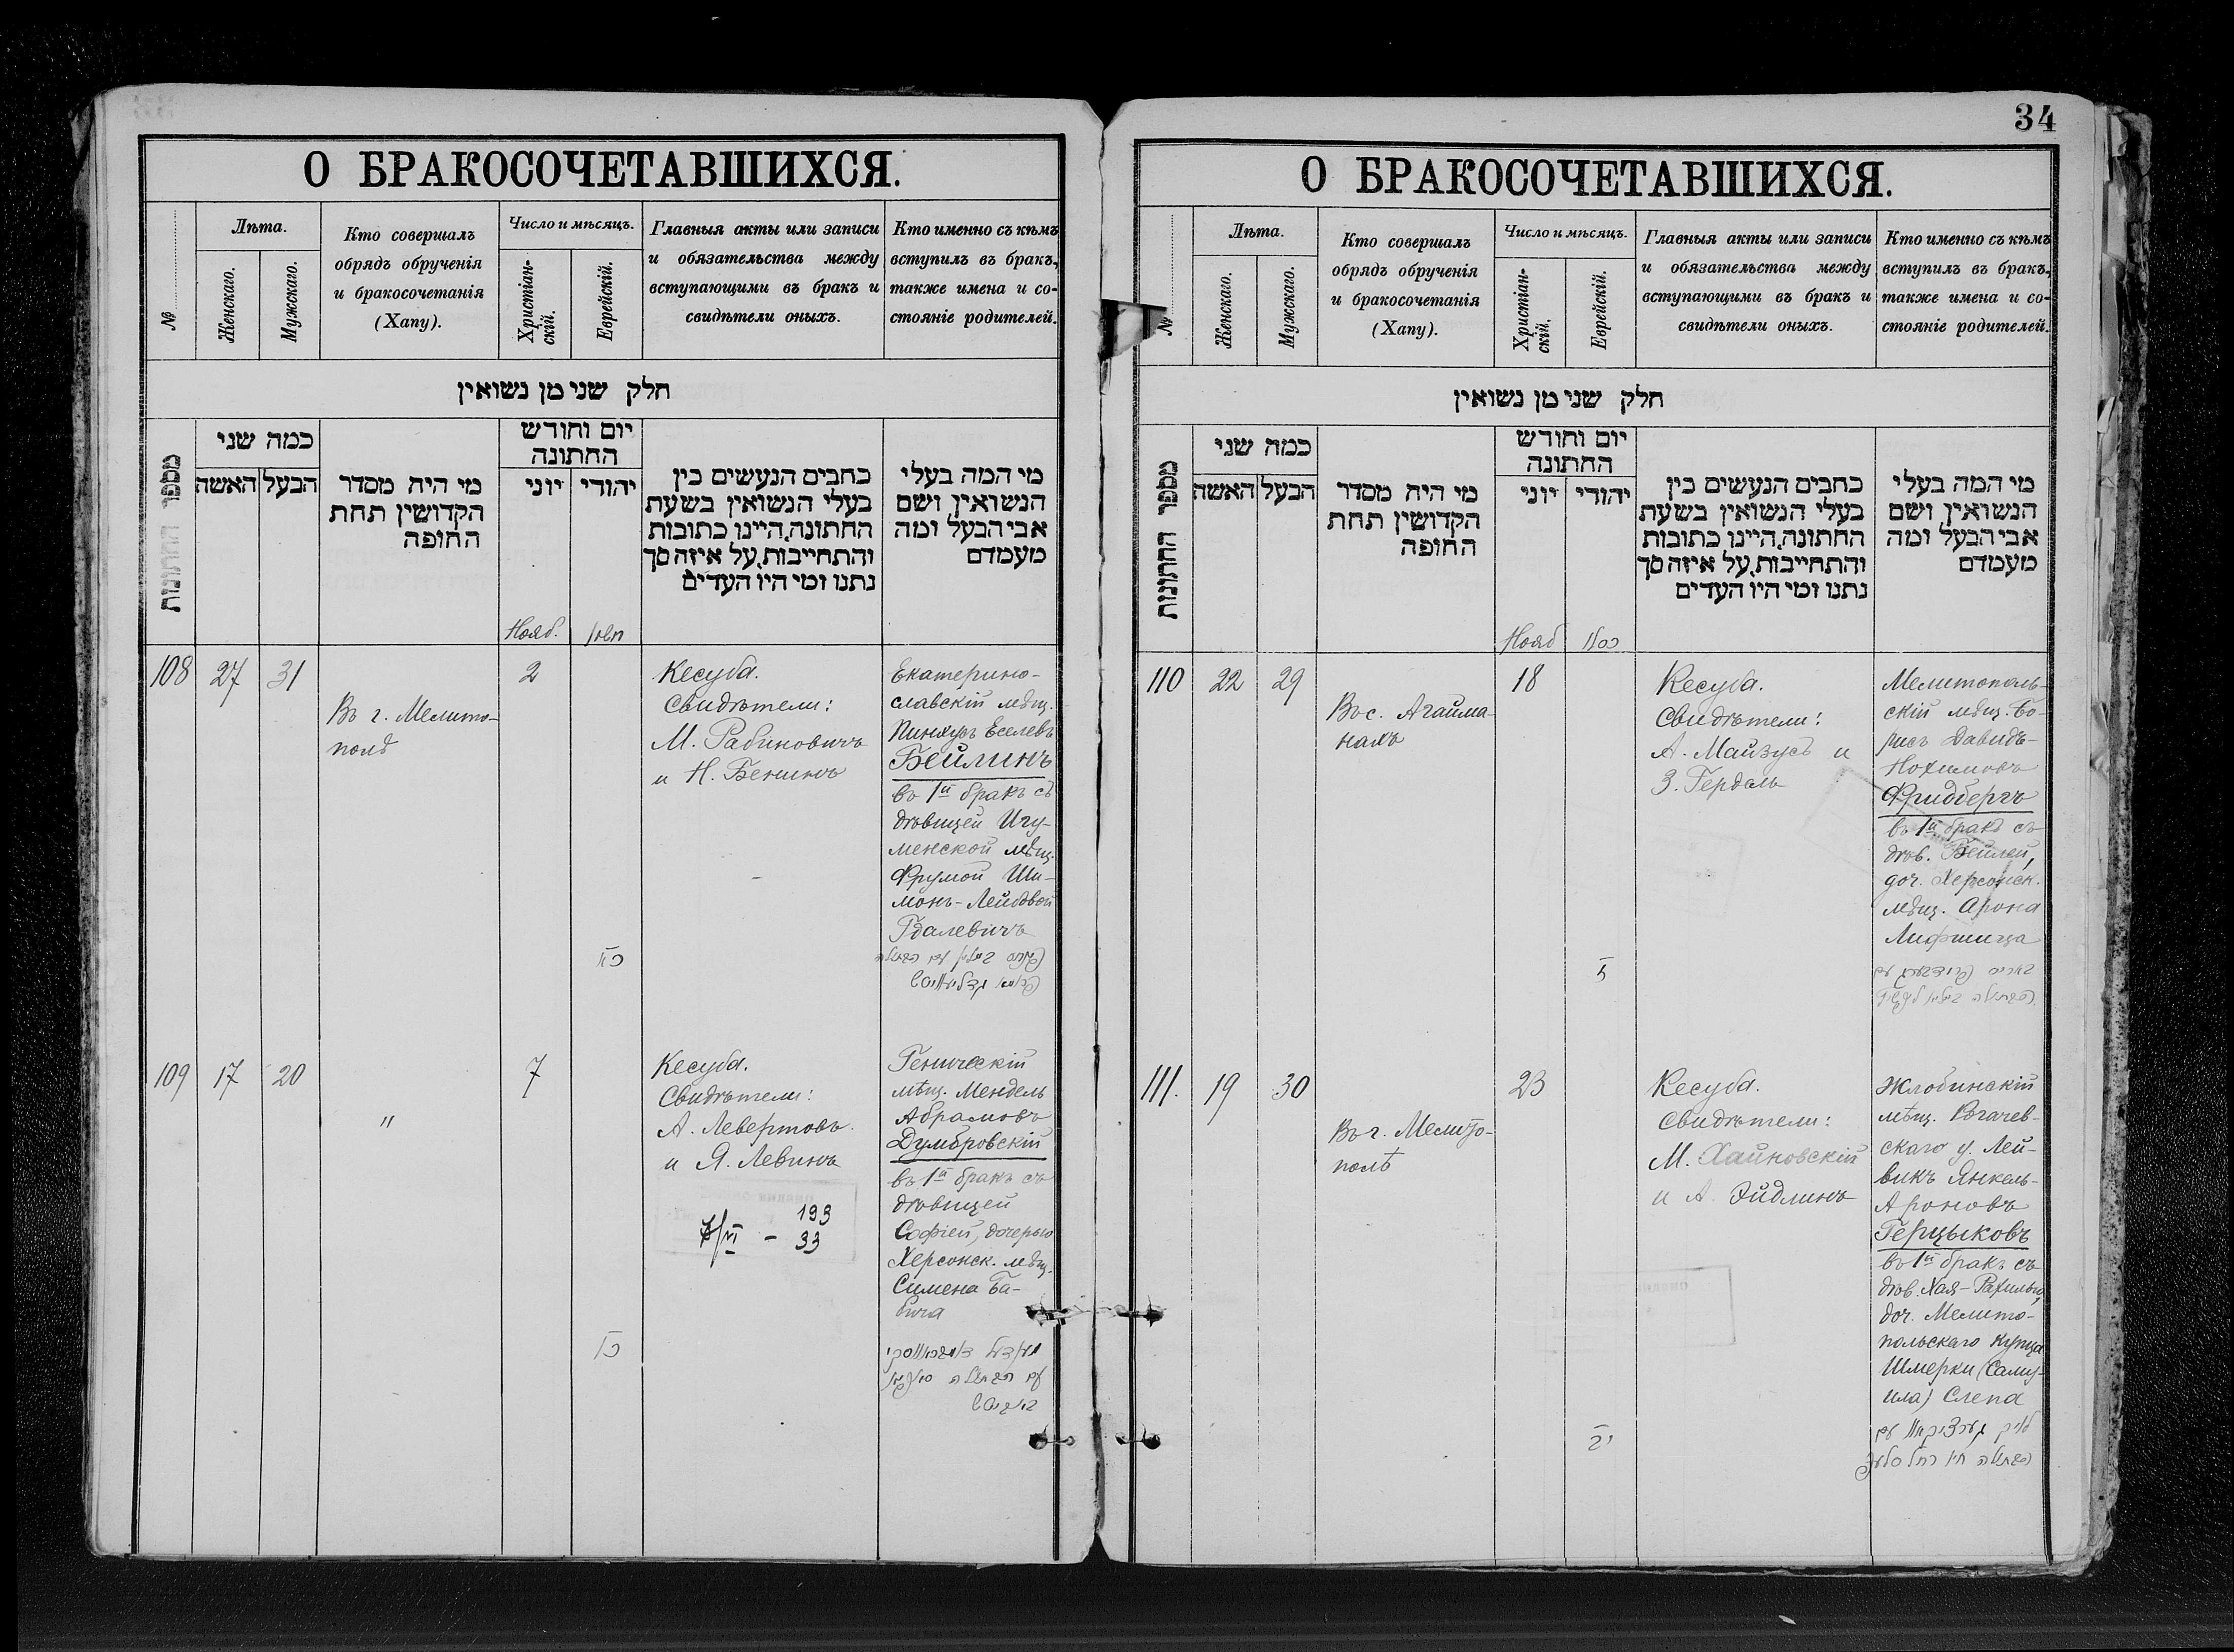 О БРАКОСОЧЕТАВШИХСЯ.
№
Лѣта.
Женскаго.
Мужскаго.
Кто совершалъ
обрядъ обрученія
и бракосочетанія
(Хапу).
Число и мѣсяцъ.
Христіан-
скій.
Еврейскій.
Главныя акты или записи
и обязательства между
вступающими въ бракъ и
свидѣтели оныхъ.
Кто именно съ кѣмъ
вступилъ въ бракъ,
также имена и со-
стояніе родителей.
חלק שני מן נשואין
מספר החתונות
כמה שני
הבעל
האשה
מי היה מסדר
הקדושין תחת
החופה
יום וחודש
החתונה
יהודי
יוני
כתבים הנעשים בין
בעלי הנשואין בשעת
החתונה, היינו כתובות
והתחייבות, על איזה סך
נתנו ומי היו העדים
מי המה בעלי
הנשואין ושם
אבי הבעל ומה
מעמדם
Нояб.
חשון
108
27
31
Въ г. Мелито-
полѣ
2
כח
Кесуба.
Свидѣтели:
М. Рабиновичъ
и Н. Бенинъ
Екатерино-
славскій мѣщ.
Пинхусъ Еселевъ
Бейлинъ
въ 1й бракъ съ
дѣвицей Игу-
менской мѣщ.
Фрумой Ши-
монъ-Лейбовой
Гдалевичъ
109
17
20
"
7
Кесуба.
Свидѣтели:
А. Левертовъ
и Я. Левинъ
7/VI – 193
33
Геническій
мѣщ. Мендель
Абрамовъ
Думбровскій
въ 1й бракъ съ
дѣвицей
Софіей, дочерью
Херсонск. мѣщ.
Симена Ба-
бича
34
О БРАКОСОЧЕТАВШИХСЯ.
№
Лѣта.
Женскаго.
Мужскаго.
Кто совершалъ
обрядъ обрученія
и бракосочетанія
(Хапу).
Число и мѣсяцъ.
Христіан-
скій.
Еврейскій.
Главныя акты или записи
и обязательства между
вступающими въ бракъ и
свидѣтели оныхъ.
Кто именно съ кѣмъ
вступилъ въ бракъ,
также имена и со-
стояніе родителей.
חלק שני מן נשואין
מספר החתונות
כמה שני
הבעל
האשה
מי היה מסדר
הקדושין תחת
החופה
יום וחודש
החתונה
יהודי
יוני
כתבים הנעשים בין
בעלי הנשואין בשעת
החתונה, היינו כתובות
והתחייבות, על איזה סך
נתנו ומי היו העדים
מי המה בעלי
הנשואין ושם
אבי הבעל ומה
מעמדם
Нояб
כסלו
110
22
29
Въ с. Агайма-
нахъ
18
Кесуба.
Свидѣтели:
А. Майзусъ и
З. Гердаль
Мелитополь-
скій мѣщ. Бо-
рисъ Давидъ-
Нохимовъ
Фридбергъ
въ 1й бракъ съ
дѣв. Бейлей,
доч. Херсонск.
мѣщ. Арона
Лифшица
111.
19
30
Въ г. Мелито-
полѣ
23
יב
Кесуба.
Свидѣтели:
М. Хайновскій
и А. Эйдлинъ
Жлобинскій
мѣщ. Рогачев-
скаго у. Лей-
викъ Янкель-
Ароновъ
Герцыковъ
въ 1й бракъ съ
дѣв. Хая-Рахилью,
доч. Мелито-
польскаго купца
Шмерки (Саму-
ила) Слепа